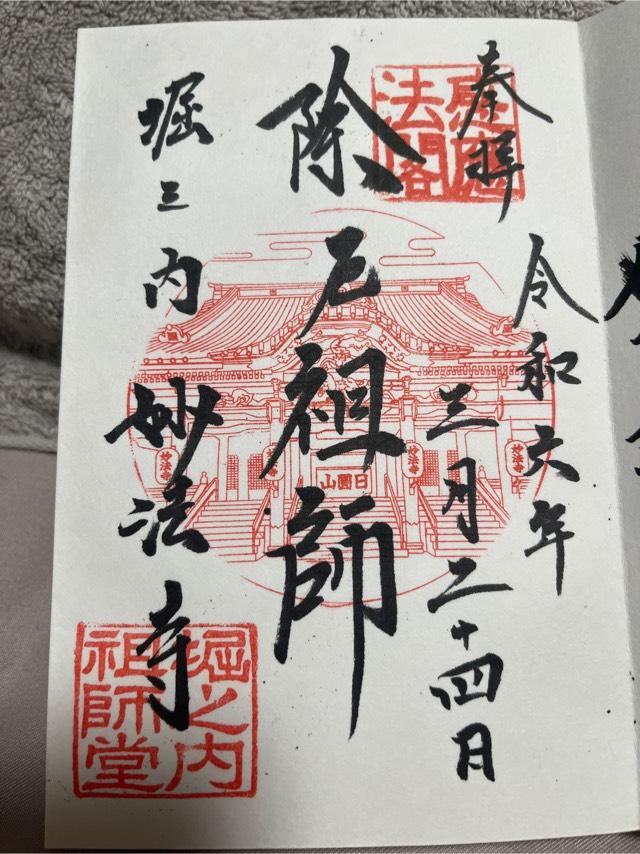 奉拝
令和六年
三月二十四日
感應
法閣
除厄祖師
妙法寺
妙法寺
日圓山
堀之内
妙法寺
堀之内
祖師堂